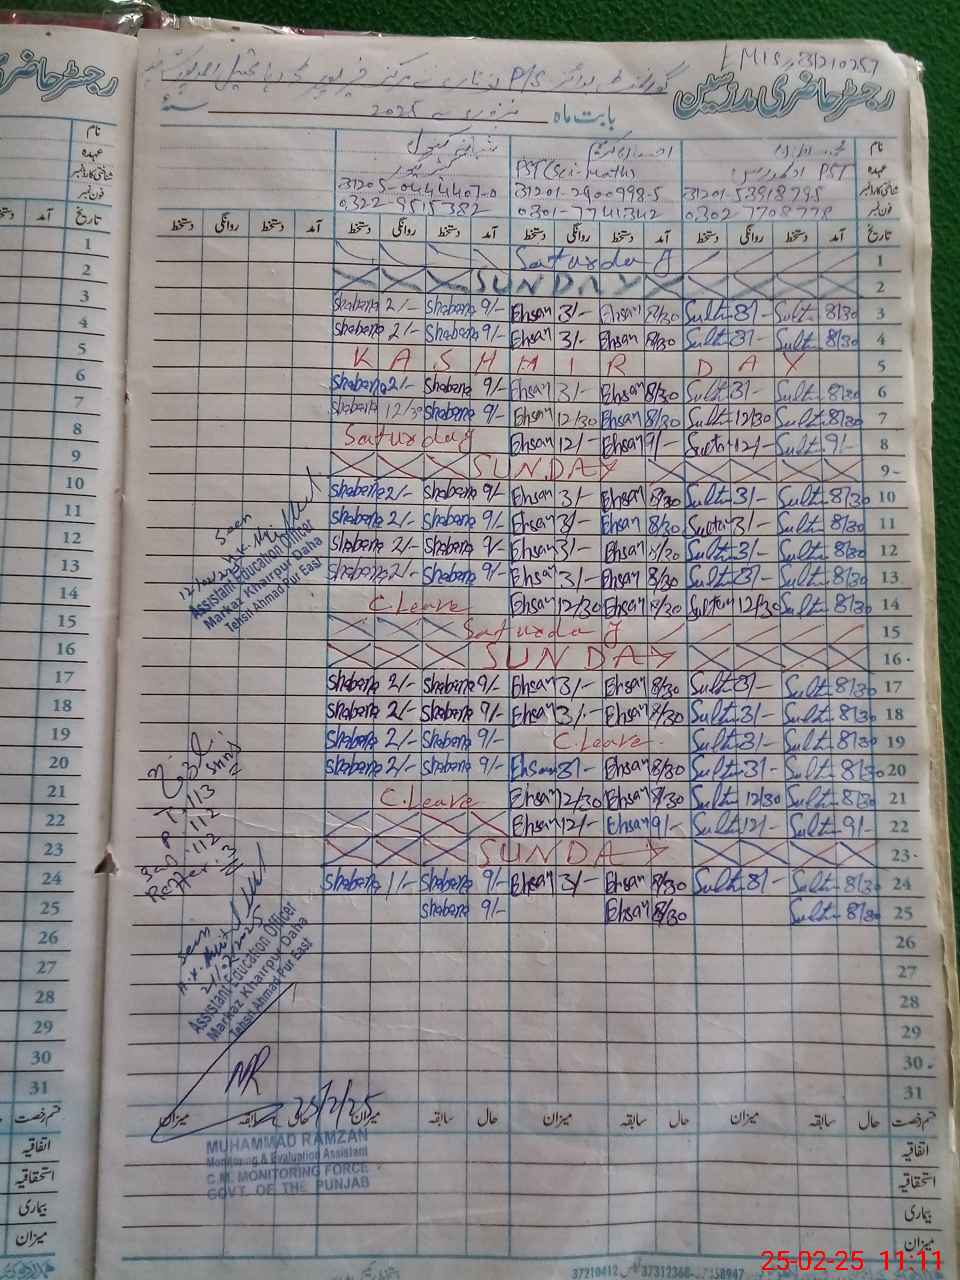 EMIS 31210257
رجسٹر حاضری مدرسین
بابت ماہ فروری 2025
نام
عہدہ PST PST (Sci-math)
شناختی کارڈ نمبر 31201-2900998-5 31205-0444407-0
فون نمبر 0302-7708778 0301-7741342 0322-9515382
تاریخ آمد دستخط روانگی دستخط آمد دستخط روانگی دستخط آمد دستخط روانگی دستخط آمد دستخط روانگی دستخط
1 Saturday
2 SUNDAY
3 Shabana 2/- Shabana 9/- Ehsan 3/- Ehsan 8/30 Sult 3/- Sult 8/30
4 Shabana 2/- Shabana 9/- Ehsan 3/- Ehsan 8/30 Sult 3/- Sult 8/30
5 KASHMIR DAY
6 Shabana 2/- Shabana 9/- Ehsan 3/- Ehsan 8/30 Sult 3/- Sult 8/30
7 Shabana 12/30 Shabana 9/- Ehsan 12/30 Ehsan 8/30 Sult 12/30 Sult 8/30
8 Saturday Ehsan 12/- Ehsan 9/- Sult 12/- Sult 9/-
9 SUNDAY
10 Shabana 2/- Shabana 9/- Ehsan 3/- Ehsan 8/30 Sult 3/- Sult 8/30
11 Shabana 2/- Shabana 9/- Ehsan 3/- Ehsan 8/30 Sultan 3/- Sult 8/30
12 Shabana 2/- Shabana 9/- Ehsan 3/- Ehsan 8/30 Sult 3/- Sult 8/30
13 Shabana 2/- Shabana 9/- Ehsan 3/- Ehsan 8/30 Sult 3/- Sult 8/30
14 C.Leave Ehsan 12/30 Ehsan 8/30 Sultan 12/30 Sult 8/30
15 Saturday
16 SUNDAY
17 Shabana 2/- Shabana 9/- Ehsan 3/- Ehsan 8/30 Sult 3/- Sult 8/30
18 Shabana 2/- Shabana 9/- Ehsan 3/- Ehsan 8/30 Sult 3/- Sult 8/30
19 Shabana 2/- Shabana 9/- C.Leave Sult 3/- Sult 8/30
20 Shabana 2/- Shabana 9/- Ehsan 3/- Ehsan 8/30 Sult 3/- Sult 8/30
21 C.Leave Ehsan 12/30 Ehsan 8/30 Sult 12/30 Sult 8/30
22 Ehsan 12/- Ehsan 9/- Sult 12/- Sult 9/-
23 SUNDAY
24 Shabana 1/- Shabana 9/- Ehsan 3/- Ehsan 8/30 Sult 3/- Sult 8/30
25 Shabana 9/- Ehsan 8/30 Sult 8/30
26
27
28
29
30
31
Seen
Assistant Education Officer
Markaz Khairpur Daha
Tehsil Ahmad Pur East
T. 113
P. 112
Seen
21/02/2025
Assistant Education Officer
Markaz Khairpur Daha
Tehsil Ahmad Pur East
MR
25/2/25
قسم رخصت حال سابقہ میزان حال سابقہ میزان حال سابقہ میزان حال سابقہ میزان
اتفاقیہ
استحقاقیہ
بیماری
میزان
MUHAMMAD RAMZAN
Monitoring & Evaluation Assistant
C.M. MONITORING FORCE
GOVT. OF THE PUNJAB
25-02-25 11:11